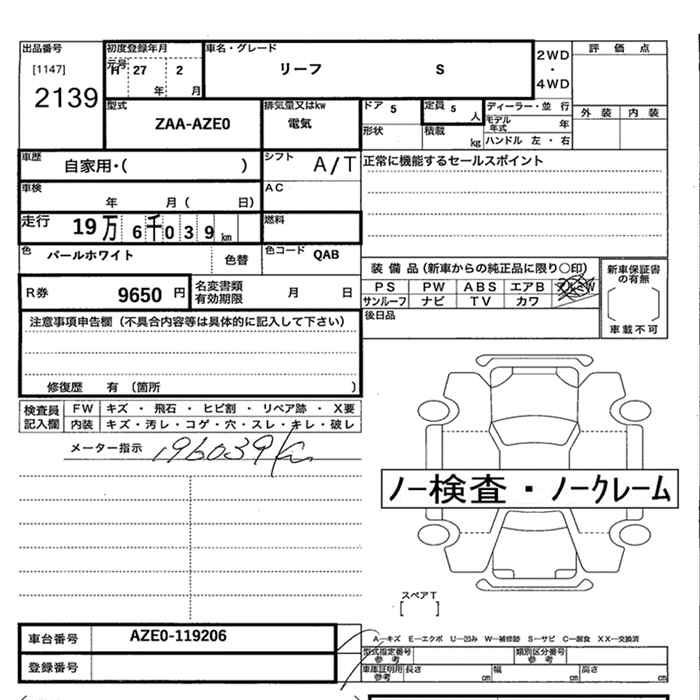 出品番号 初度登録年月 車名・グレード 2WD ・ 4WD 評 価 点
[1147] 元号 H 27 2 リーフ S
2139 年 月 外 装 内 装
型式 排気量又はkw ドア 5 定員 5 人 ディーラー・並 行
ZAA-AZE0 電気 形状 積載 kg モデル年式 年
ハンドル 左 ・ 右
車歴 自家用・( ) シフト A/T 正常に機能するセールスポイント
車検 年 月 ( 日) AC
走行 19万 6千 0 3 9 km 燃料
色 パールホワイト 色替 色コード QAB
装 備 品 (新車からの純正品に限り○印) 新車保証書の有無
R券 9650 円 名変書類有効期限 月 日
PS PW ABS エアB アルミW
サンルーフ ナビ TV カワ
後日品 車載不可
注意事項申告欄 (不具合内容等は具体的に記入して下さい)
修復歴 有 (箇所 )
検査員記入欄 FW キズ ・ 飛石 ・ ヒビ割 ・ リペア跡 ・ X要
内装 キズ・汚レ・コゲ・穴・スレ・キレ・破レ
メーター指示 196039km
ノー検査・ノークレーム
スペアT
[ ]
車台番号 AZE0-119206
A―キズ E―エクボ U―凹み W―補修跡 S―サビ C―腐食 XX―交換済
登録番号 型式指定番号 参考 類別区分番号 参考
車庫証明用 参考 長さ cm 幅 cm 高さ cm